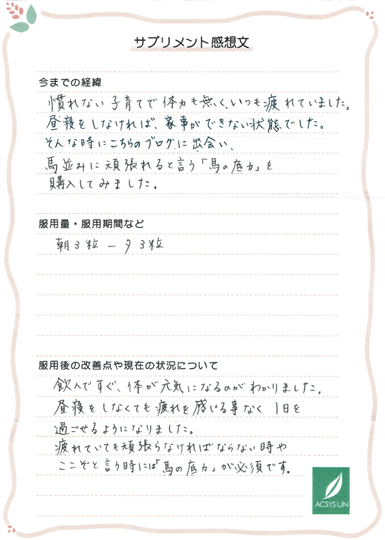 サプリメント感想文
今までの経緯
慣れない子育てで体力も無く、いつも疲れていました。
昼寝をしなければ、家事ができない状態でした。
そんな時にこちらのブログに出会い、
馬並みに頑張れると言う「馬の底力」を
購入してみました。
服用量・服用期間など
朝3粒 ー 夕3粒
服用後の改善点や現在の状況について
飲んですぐ、体が元気になるのがわかりました。
昼寝をしなくても疲れを感じる事なく1日を
過ごせるようになりました。
疲れていても頑張らなければならない時や
ここぞと言う時には「馬の底力」が必須です。
ACSYS UN